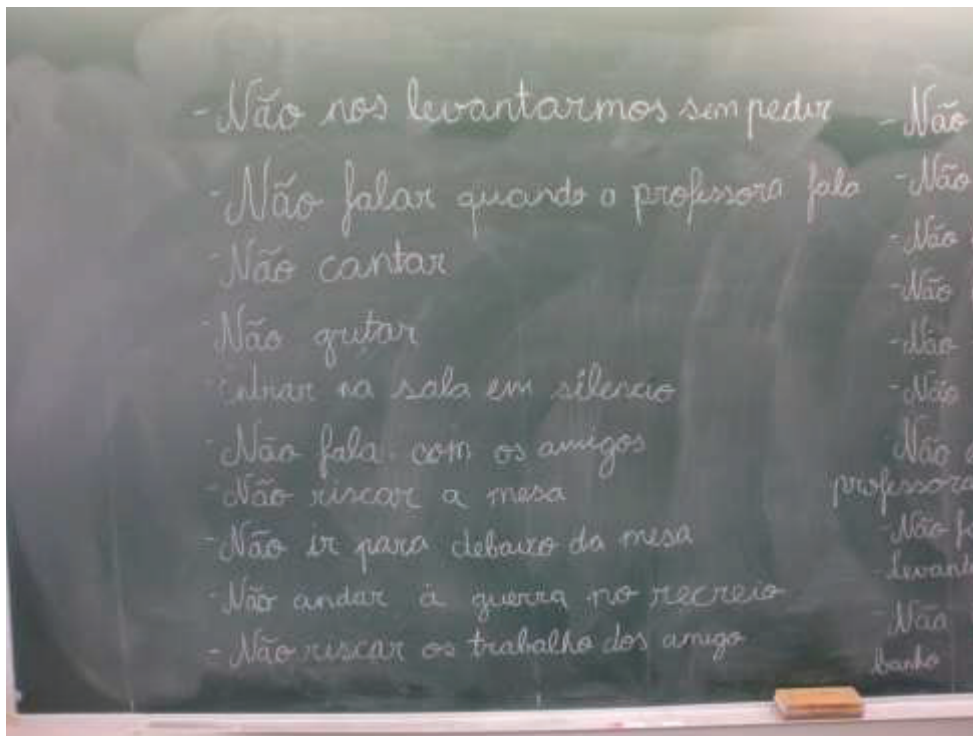 - Não nos levantarmos sem pedir
- Não falar quando a professora fala
- Não cantar
- Não gritar
- Entrar na sala em silencio
- Não fala com os amigos
- Não riscar a mesa
- Não ir para debaixo da mesa
- Não andar à guerra no recreio
- Não riscar os trabalho dos amigo
- Não
- Não
- Não
- Não
- Não
- Não
Não
professora
- Não
- levant
- Não
banho